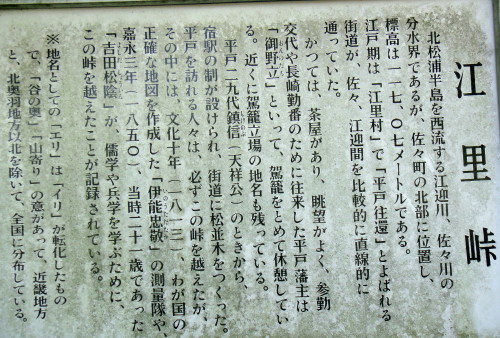 江里峠
北松浦半島を西流する江迎川、佐々川の
分水界であるが、佐々町の北部に位置し、
標高は一一七、〇七メートルである。
江戸期は「江里村」で「平戸往還」とよばれる
街道が、佐々、江迎間を比較的に直線的に
通っていた。
かつては、茶屋があり、眺望がよく、参勤
交代や長崎勤番のために往来した平戸藩主は
「御野立」といって、駕籠をとめて休憩してい
る。近くに駕籠立場の地名も残っている。
平戸二九代鎮信(天祥公)のときから、
宿駅の制が設けられ、街道に松並木をつくった。
平戸を訪れる人々は、必ずこの峠を越えたが、
その中には、文化十年(一八一三)、わが国の
正確な地図を作成した「伊能忠敬」の測量隊や、
嘉永三年(一八五〇)、当時二十一歳であった
「吉田松陰」が、儒学や兵学を学ぶために、
この峠を越えたことが記録されている。
※地名としての「エリ」は「イリ」が転化したもの
で、「谷の奥」「山寄り」の意があって、近畿地方
と、北奥羽地方以北を除いて、全国に分布している。